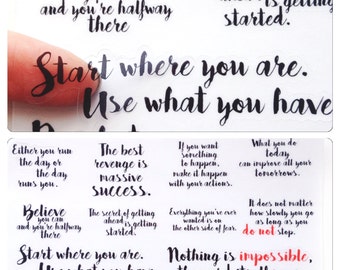 and you're halfway
there
is getting
started.
Start where you are.
Use what you have
Either you run
the day or
the day
runs you.
The best
revenge is
massive
success.
If you want
something
to happen,
make it happen
with your actions.
What you do
today
can improve all your
tomorrows.
Believe
you can
and you're halfway
there
The secret of getting
ahead is
getting
started.
Everything you've ever
wanted is on
the other side of fear.
It does not matter
how slowly you go
as long as you
do not stop.
Start where you are.
Nothing is impossible,